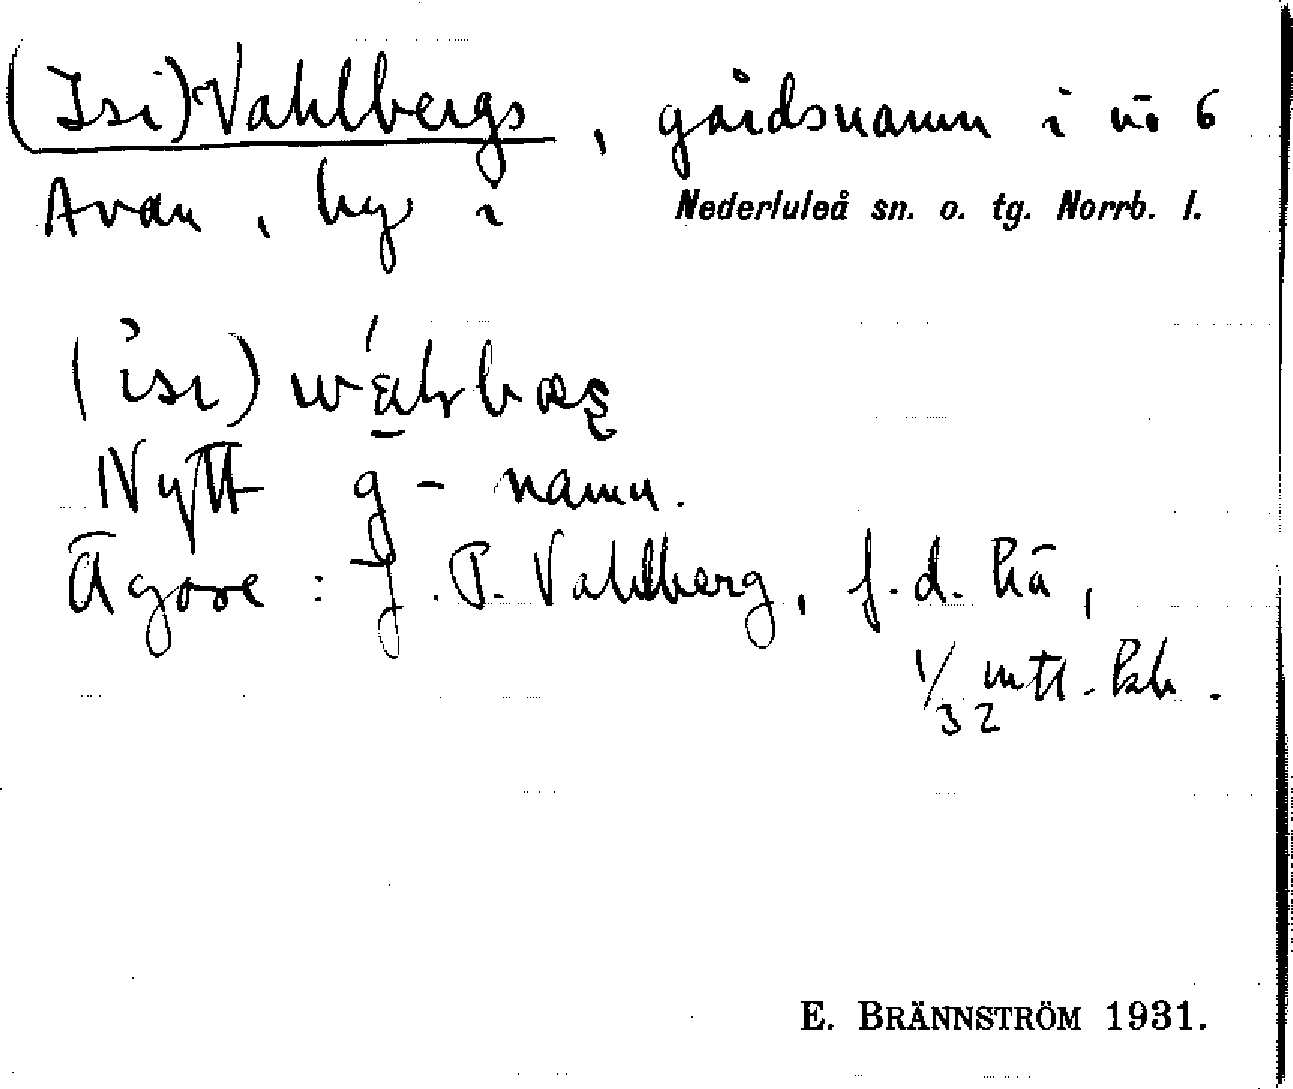 (Isi)Vahlbergs, gårdsnamn i nr 6
Avan, by i Nederluleå sn. o. tg. Norrb. l.
Nytt g-namn.
Ägare: J. P. Vahlberg, f. d.
1/32 mtl.
E. BRÄNNSTRÖM 1931.